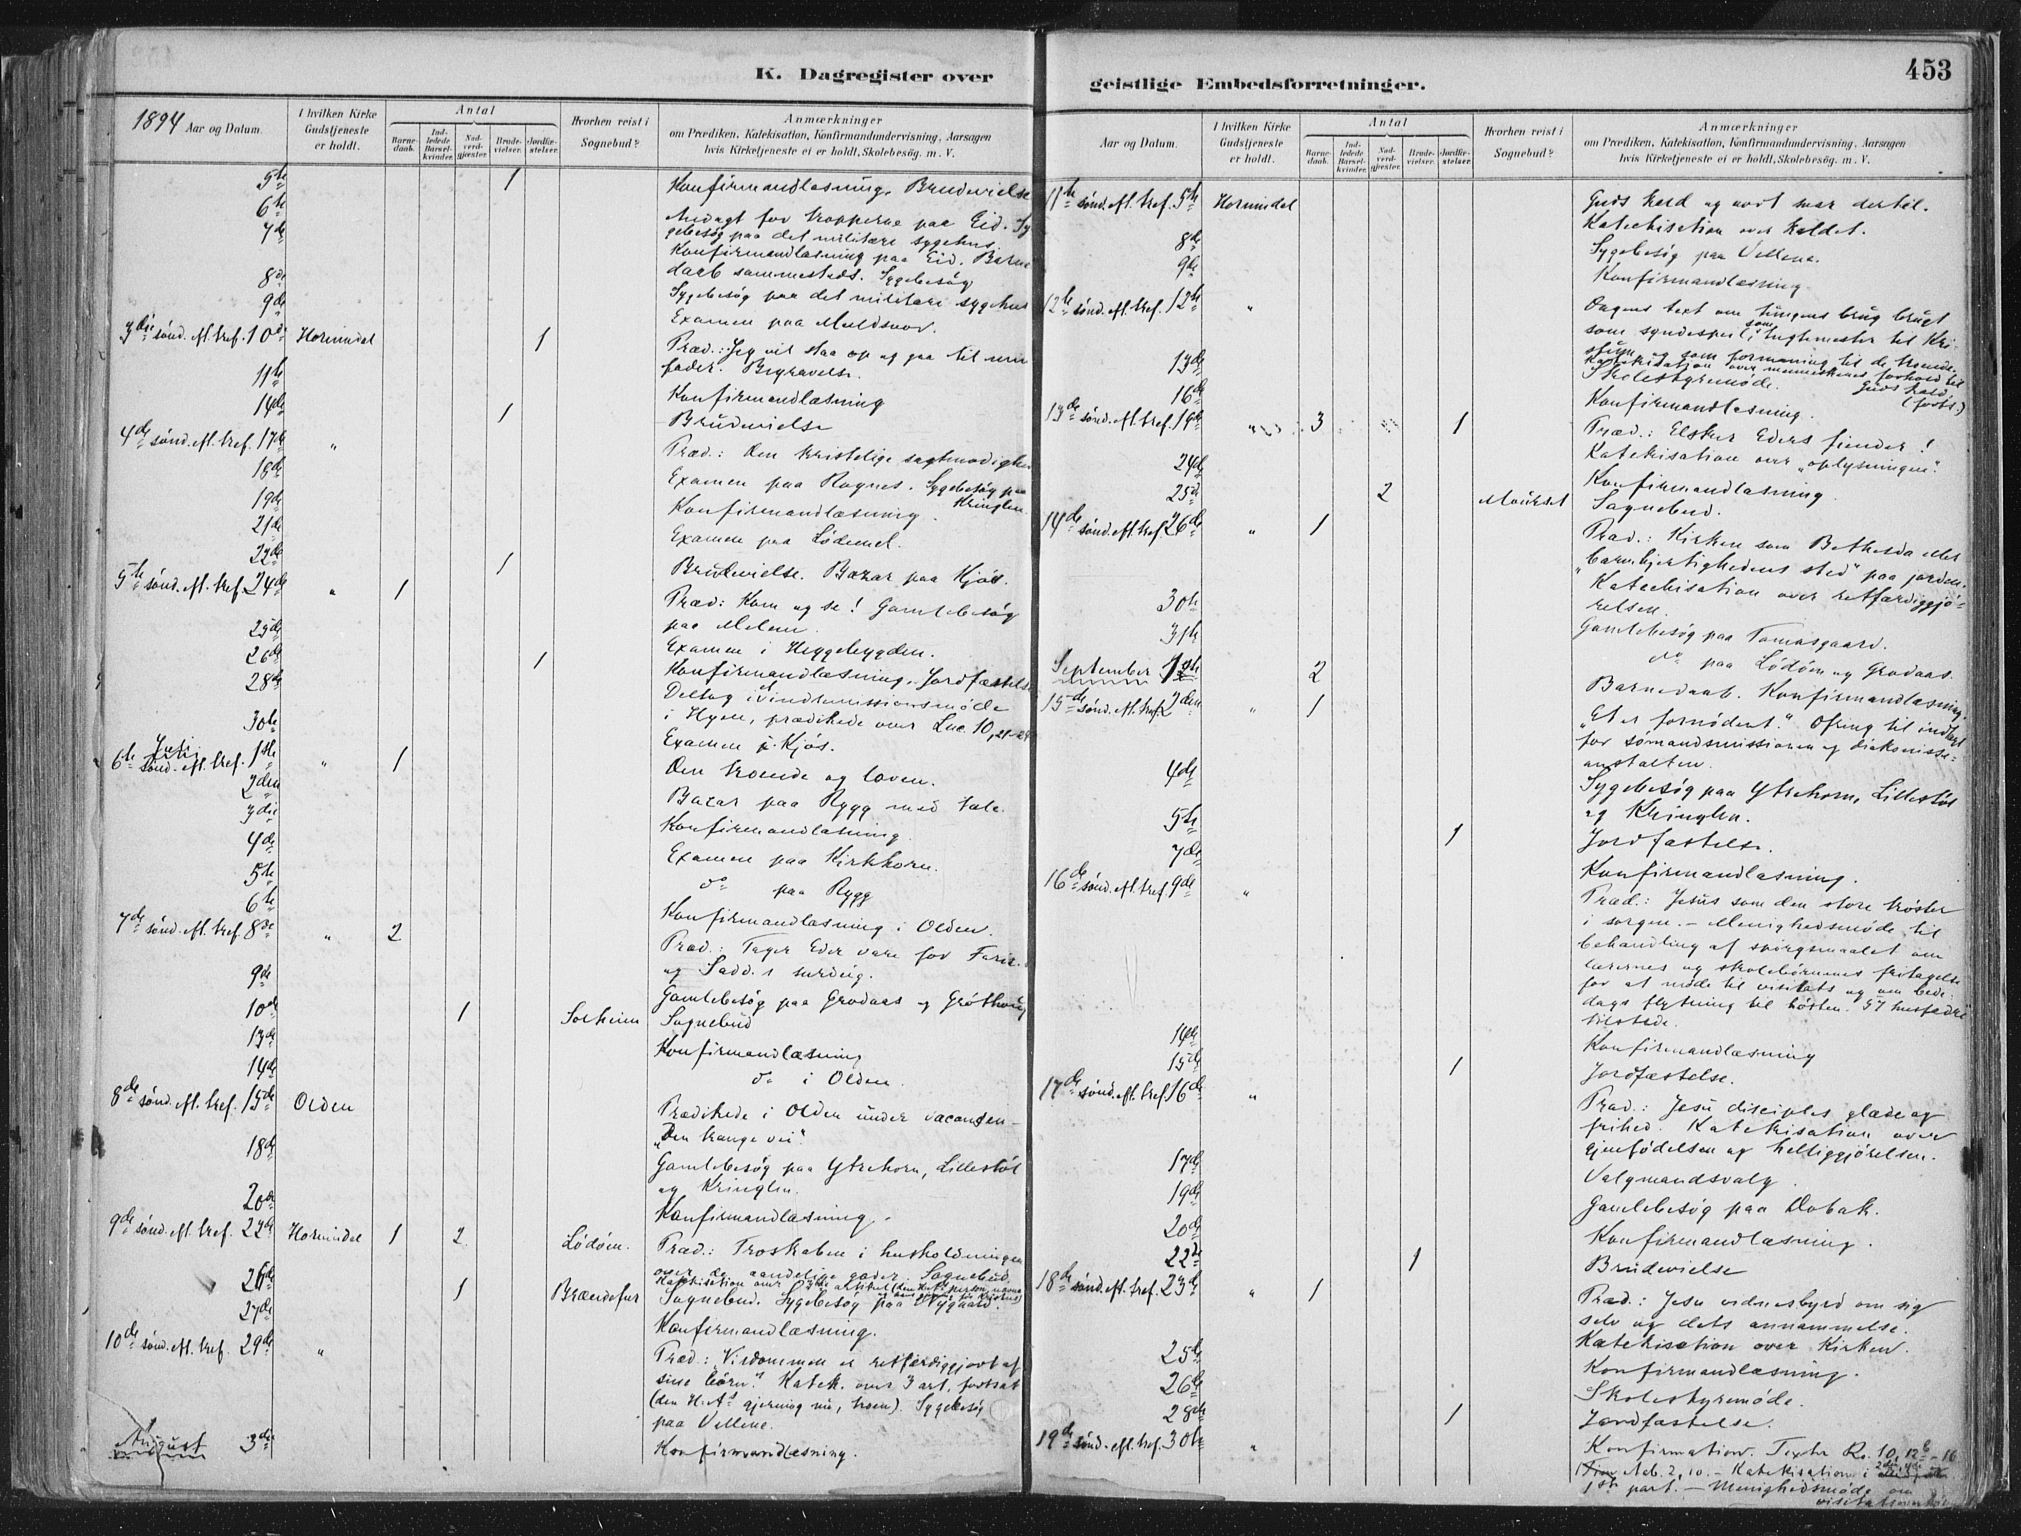 K. Dagregister over
1894 Aar og Datum.
I hvilken Kirke Gudstjeneste er holdt.
Antal
Barnedaab.
Indledede Barselkvinder.
Nadverdgjester.
Brudevielser.
Jordfæstelser.
Hvorhen reist i Sognebud?
Anmærkninger
om Prædiken, Katekisation, Konfirmandundervisning, Aarsagen
hvis Kirketjeneste ei er holdt, Skolebesög. m. V.
5te 1 Konfirmandlæsning. Brudevielse
6te Andagt for tropperne paa Eid. Sy
7de gebesøg paa det militære sygehus.
Konfirmandlæsning paa Eid. Barne
8de daab sammesteds. Sygebesøg
9de Sygebesøg paa det militære sygehus
Examen paa Muldsvor.
3die sønd. eft. tref. 10de Hornindal 1 Præd.: Jeg vil staa op og gaa til min
fader. Begravelse.
11te Konfirmandlæsning
14de 1 Brudevielse
4de sønd. eft. tref. 17de " Præd.: Den kristelige sagtmodighed
18de Examen paa Rognes. Sygebesøg paa
Kringlen
19de Konfirmandlæsning.
21de Examen paa Lødemel.
22de 1 Brudevielse. Bazar paa Kjøs.
5te sønd. eft. tref. 24de " 1 Præd: Kom og se! Gamlebesøg
paa Melem.
25de Examen i Heggebygden.
26de 1 Konfirmandlæsning. Jordfæstelse
28de Deltog i et indremissionsmøde
i Hyen, prædikede over Luc. 10, 21-24
30te Examen p. Kjøs.
Juli
6te sønd. eft. tref. 1ste " 1 Den troende og loven.
2den Bazar paa Rygg med tale.
3die Konfirmandlæsning.
4de Examen paa Kirkhorn.
5te do paa Rygg
6te Konfirmandlæsning i Olden.
7de sønd. eft. tref. 8de " 2 Præd.: Tager Eder vare for Faris.
og Sadd.s surdeig.
9de Gamlebesøg paa Grodaas og Grøthaug
10de 1 Solheim Sognebud
13de Konfirmandlæsning
14de do i Olden.
8de sønd. eft. tref. 15de Olden Prædikede i Olden under vacansen -
"Den trange vei".
18de Gamlebesøg paa Ytrehorn, Lillestøl
og Kringlen.
20de Konfirmandlæsning.
9de sønd. eft. tref. 22de Hornindal 1 2 Lødøm. Præd.: Troskaben i husholdningen
over de aandelige goder. Sognebud.
Katekisation over 3die artikel (den H.A.s person, navne
26de 1 Brændefur Sognebud. Sygebesøg paa Nygaard.
27de Konfirmandlæsning.
10de sønd. eft. tref. 29de " Præd.: Visdommen er retfærdiggjort af
sine børn." Katek. over 3 art. fortsat
(den H. A.s gjerning nu, troen). Sygebesøg
paa Vellene.
August 3die Konfirmandlæsning.
geistlige Embedsforretninger.
453
Aar og Datum.
I hvilken Kirke Gudstjeneste er holdt.
Antal
Barnedaab.
Indledede Barselkvinder.
Nadverdgjester.
Brudevielser.
Jordfæstelser.
Hvorhen reist i Sognebud?
Anmærkninger
om Prædiken, Katekisation, Konfirmandundervisning, Aarsagen
hvis Kirketjeneste ei er holdt, Skolebesög. m. V.
11te sønd. eft. tref. 5te Hornindal Guds kald og vort svar dertil.
Katechisation over kaldet.
8de Sygebesøg paa Vellene.
9de Konfirmandlæsning
12te sønd. eft. tref. 12te " Dagens text om tungens brug brugt
som syndespeil, som tugtemester til Kri-
stum og som formaning til de troende.
Katekisation over menneskenes forhold til
13de Skolestyremøde. Guds kald
(forts.)
16de Konfirmandlæsning.
13de sønd. eft. tref. 19de " 3 1 Præd.: Elsker Eders fiender!
Katekisation over "oplysningen".
24de Konfirmandlæsning
25de 2 Maurset Sognebud.
14de sønd. eft. tref. 26de " 1 Præd.: Kirken som Bethesda eller
"barmhjertighedens sted" paa jorden.
Katechisation over retfærdiggjø-
relsen.
30te Gamlebesøg paa Tomasgaard.
31te do paa Lødøm og Grodaas.
September 1ste 2 Barnedaab. Konfirmandlæsning.
15de sønd. eft. tref. 2den " 1 "Et er fornødent." Ofring til indtægt
for sømandsmissionen og diakonisse-
anstalten.
4de Sygebesøg paa Ytrehorn, Lillestøl
og Kringlen.
5te 1 Jordfæstelse.
7de Konfirmandlæsning.
16de sønd. eft. tref. 9de " Præd.: Jesus som den store trøster
i sorgen. - Menighedsmøde til
behandling af spørgsmaalet om
lærernes og skolebørnenes fritagelse
for at møde til visitats og om bede-
dags flytning til høsten. 57 husfædre
tilstede.
14de Konfirmandlæsning
15de 1 Jordfæstelse.
17de sønd. eft. tref. 16de " Præd.: Jesu disciples glæde og
frihed. Katekisation over
gjenfødelsen og helliggjørelsen.
17de Valgmandsvalg.
19de Gamlebesøg paa Dobak.
20de Konfirmandlæsning.
22de 1 Brudevielse
18de sønd. eft. tref. 23de " 1 Præd.: Jesu vidnesbyrd om sig
selv og dets annammelse.
Katekisation over Kirken.
25de Konfirmandlæsning.
26de Skolestyremøde.
28de 1 Jordfæstelse.
19de sønd. eft. tref. 30te " Konfirmation. Texter Ro. 10, 12b-16
Aab. 2, 10. - Katekisation i
1ste part. - Menighedsmøde om